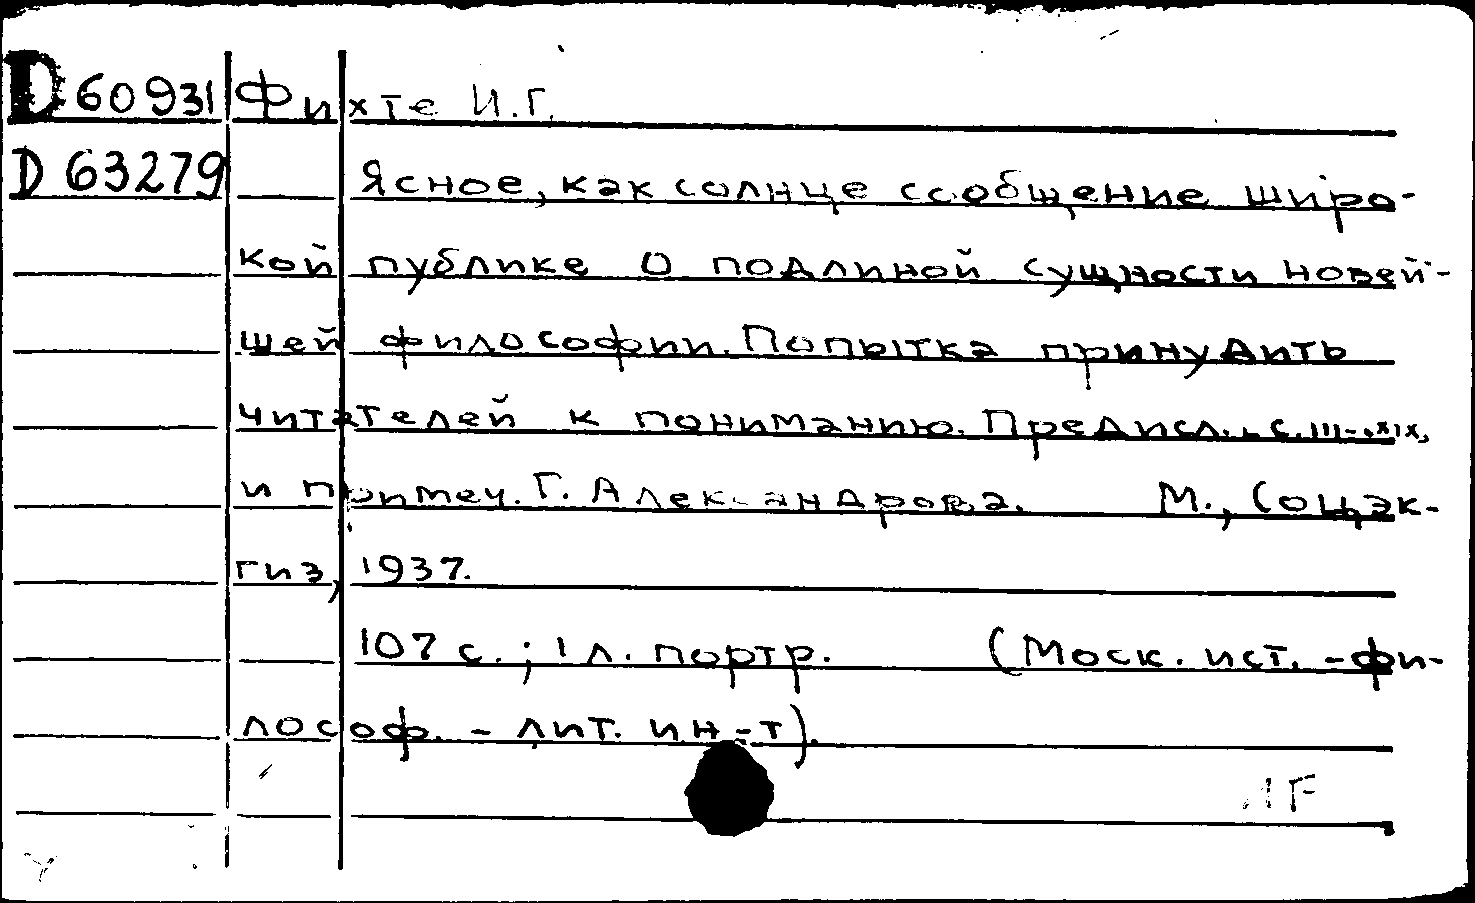 D 60931 Фихте И.Г.
D 63279 Ясное, как солнце сообщение широ-
кой публике о подлиной сущности новей-
шей философии. Попытка принудить
читателей к пониманию. Предисл., с. III-XIX,
и примеч. Г. Александрова. М., Соцэк-
гиз, 1937.
107 с.; 1 л. портр. (Моск. ист.-фи-
лософ.-лит. ин-т).